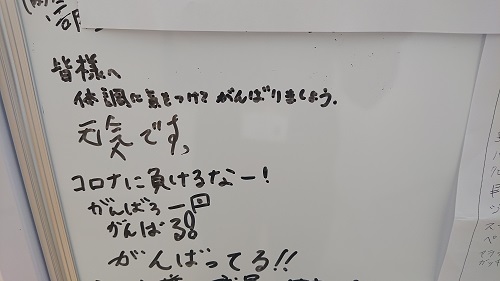 皆様へ
体調に気をつけてがんばりましょう。
元気です。
コロナに負けるなー!
がんばろー
がんばる!
がんばってる!!